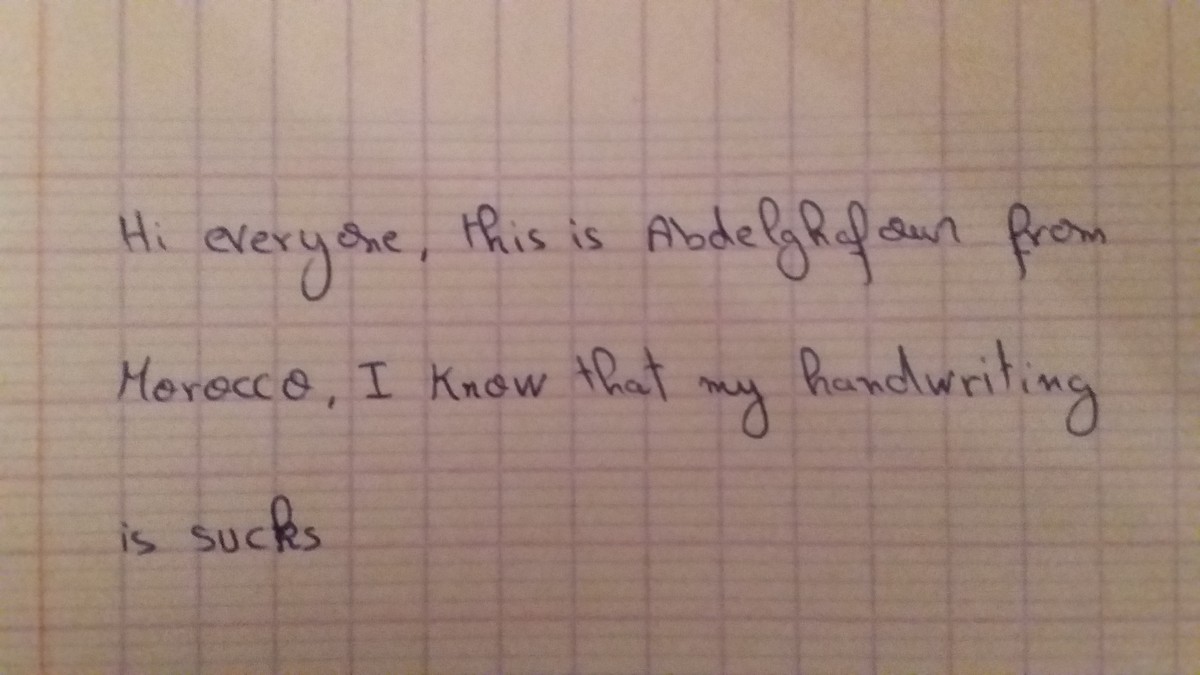 Hi everyone, this is Abdelghafour from
Morocco, I Know that my handwriting
is sucks